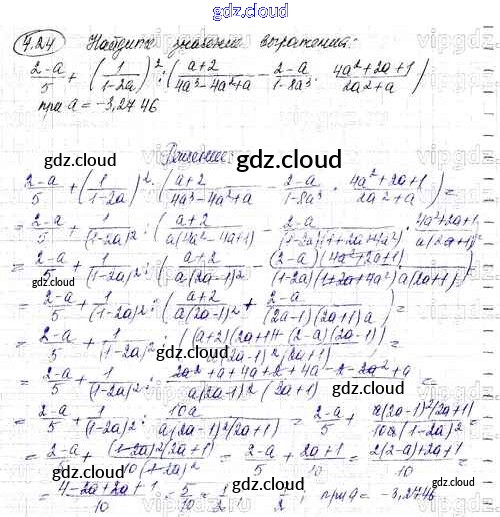 gdz.cloud
4.24 Найдите значение выражения:
(2-a)/5 + (1/(1-2a))² : ((a+2)/(4a³-4a²+a) - (2-a)/(1-8a³) · (4a²+2a+1)/(2a²+a))
при a = -3,2746
Решение:
gdz.cloud gdz.cloud gdz.cloud
(2-a)/5 + (1/(1-2a))² : ((a+2)/(4a³-4a²+a) - (2-a)/(1-8a³) · (4a²+2a+1)/(2a²+a)) =
= (2-a)/5 + 1/(1-2a)² : ((a+2)/(a(4a²-4a+1)) - (2-a)/((1-2a)(1+2a+4a²)) · (4a²+2a+1)/(a(2a+1))) =
= (2-a)/5 + 1/(1-2a)² : ((a+2)/(a(2a-1)²) - (2-a)(4a²+2a+1)/((1-2a)(1+2a+4a²)a(2a+1))) =
gdz.cloud gdz.cloud
= (2-a)/5 + 1/(1-2a)² : ((a+2)/(a(2a-1)²) + (2-a)/((2a-1)(2a+1)a)) =
= (2-a)/5 + 1/(1-2a)² : ((a+2)(2a+1)+(2-a)(2a-1))/(a(2a-1)²(2a+1)) =
gdz.cloud
= (2-a)/5 + 1/(1-2a)² : (2a²+a+4a+2+4a-2-2a²+a)/(a(2a-1)²(2a+1)) =
gdz.cloud
= (2-a)/5 + 1/(1-2a)² : 10a/(a(2a-1)²(2a+1)) = (2-a)/5 + a(2a-1)²(2a+1)/(10a(1-2a)²) =
= (2-a)/5 + (1-2a)²(2a+1)/(10(1-2a)²) = (2-a)/5 + (2a+1)/10 = (2(2-a)+2a+1)/10 =
gdz.cloud gdz.cloud gdz.cloud
= (4-2a+2a+1)/10 = 5/10 = 1/2 ; 1/2 при a = -3,2746